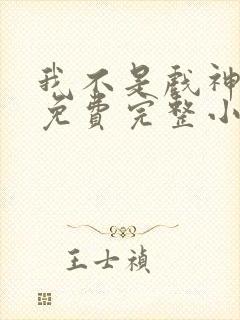 我不是戏神
免费完整小
王士禎